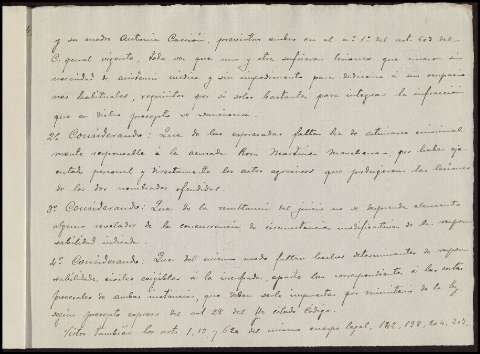 y su madre Antonia Carrión, previstas ambas en el nº 1º del art. 603 del
C. penal vigente, toda vez que una y otra sufrieron lesiones que curaron sin
necesidad de asistencia médica y sin impedimento para dedicarse a sus ocupacio
nes habituales, requisitos por sí solos bastantes para integrar la infracción
que en dicho precepto se sanciona.
2º Considerando: Que de las expresadas faltas ha de estimarse criminal
mente responsable á la acusada Rosa Martínez Manchona por haber eje
cutado personal y directamente los actos agresivos que produjeron las lesiones
de los dos nombrados ofendidos.
3º Considerando: Que de la resultancia del juicio no se desprende elemento
alguno revelador de la concurrencia de circunstancia modificativa de la respon
sabilidad indicada.
4º Considerando: Que del mismo modo faltan hechos determinantes de respon
sabilidades civiles exigibles á la inculpada, aparte las correspondientes á las costas
procesales de ambas instancias, que deben serle impuestas por ministerio de la ley
según precepto expreso del art 28 del citado Código.
Vistos también los arts 1, 19 y 620 del mismo cuerpo legal,